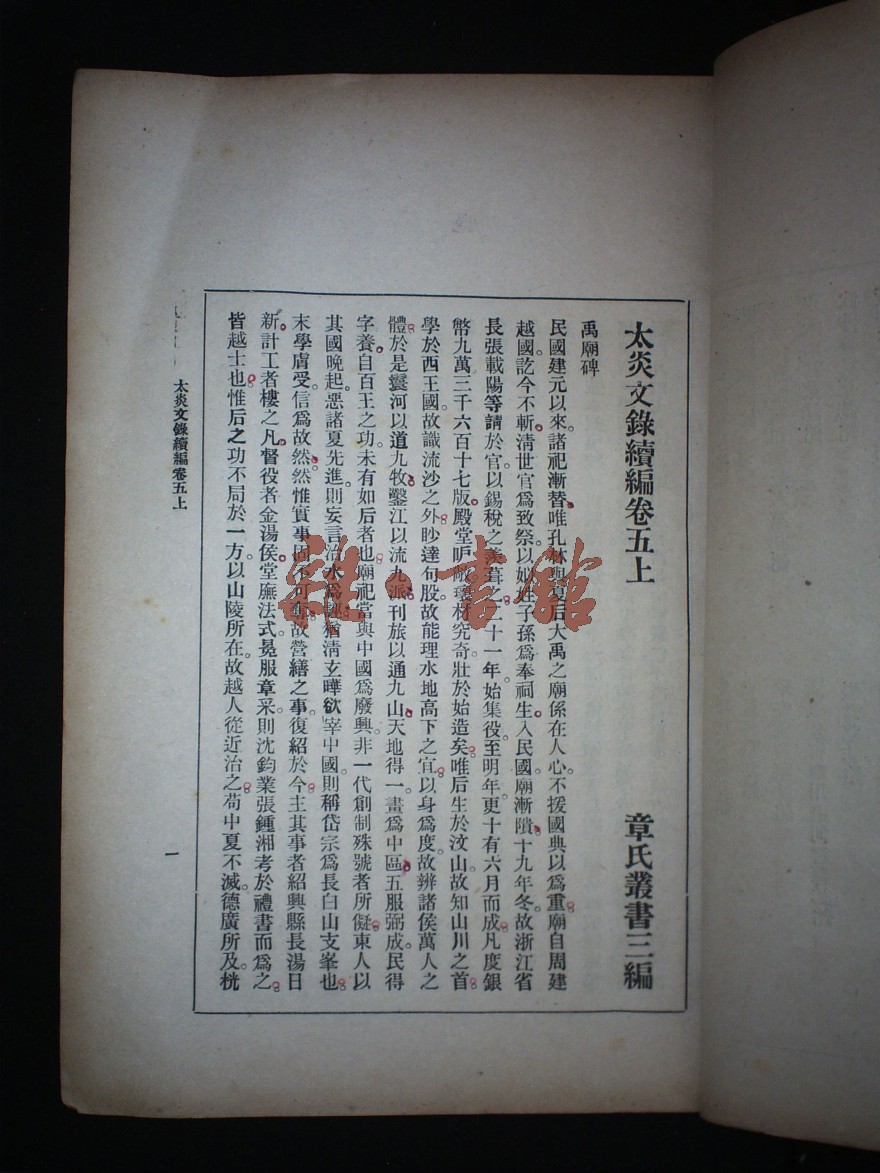 太炎文錄續編卷五上　章氏叢書三編
禹廟碑
民國建元以來。諸祀漸替。唯孔林與夏后大禹之廟係在人心。不援國典以爲重。廟自周建
越國。訖今不斬。淸世官爲致祭。以姒姓子孫爲奉祠生。入民國。廟漸隤。十九年冬。故浙江省
長張載陽等請於官。以錫稅之羨葺之。二十一年。始集役。至明年。更十有六月而成。凡度銀
幣九萬三千六百十七版。殿堂戺敞。瓌材究奇。壯於始造矣。唯后生於汶山。故知山川之首。
學於西王國。故識流沙之外。眇達句股。故能理水地高下之宜。以身爲度。故辨諸侯萬人之
體。於是釃河以道九牧。鑿江以流九派。刊旅以通九山。天地得一。畫爲中區。五服弼成。民得
字養。自百王之功。未有如后者也。廟祀當與中國爲廢興。非一代創制殊號者所儗。東人以
其國晚起。惡諸夏先進。則妄言治水爲誣。猶淸玄曄欲宰中國。則稱岱宗爲長白山支峯也。
末學膚受。信爲故然。然惟實事固不可奪。故營繕之事。復紹於今。主其事者紹興縣長湯日
新。計工者樓之凡。督役者金湯侯。堂廡法式。冕服章采。則沈鈞業張鍾湘考於禮書而爲之。
皆越士也。惟后之功不局於一方。以山陵所在。故越人從近治之。苟中夏不滅。德廣所及。桄
太炎文錄續編卷五上
一
雜·書館